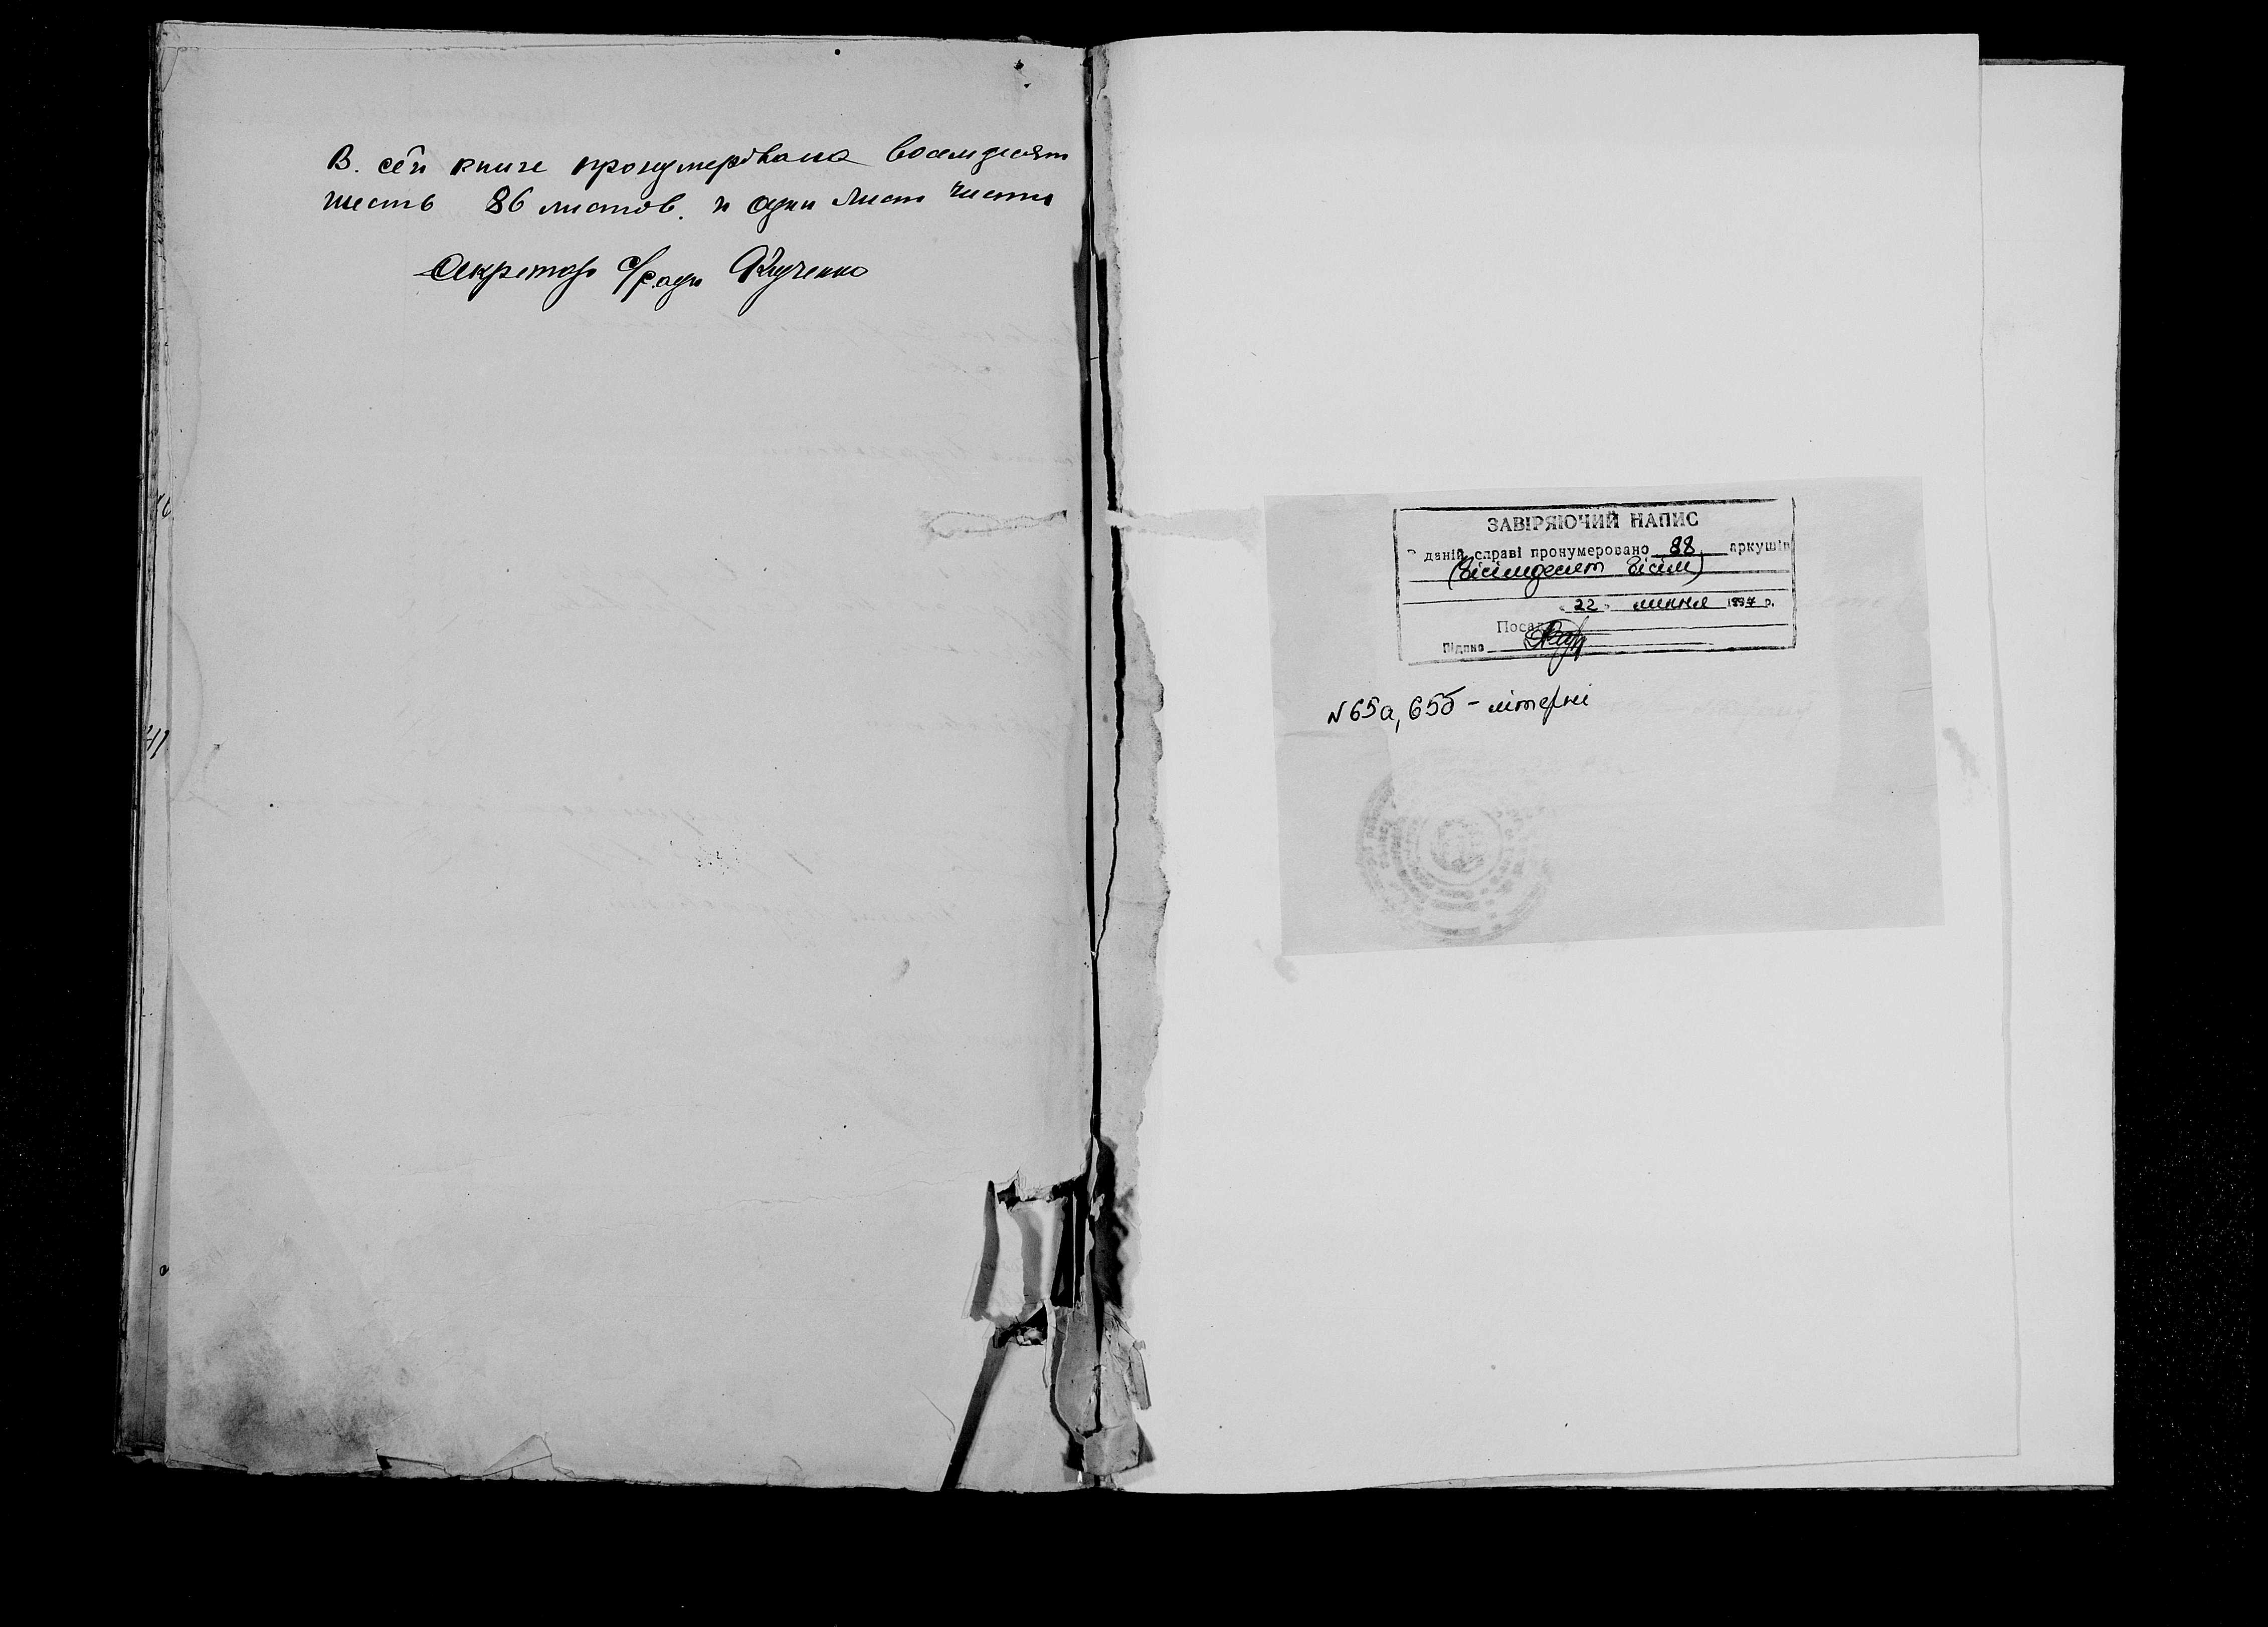 В. сей книге пронумерована восемдесят
шесть 86 листов. и один лист чисти
Секретар с/ради
ЗАВІРЯЮЧИЙ НАПИС
В даній справі пронумеровано 88 аркушів
(вісімдесят вісім)
"22" липня 1997 р.
Посада
Підпис
N 65а, 65б - літерні